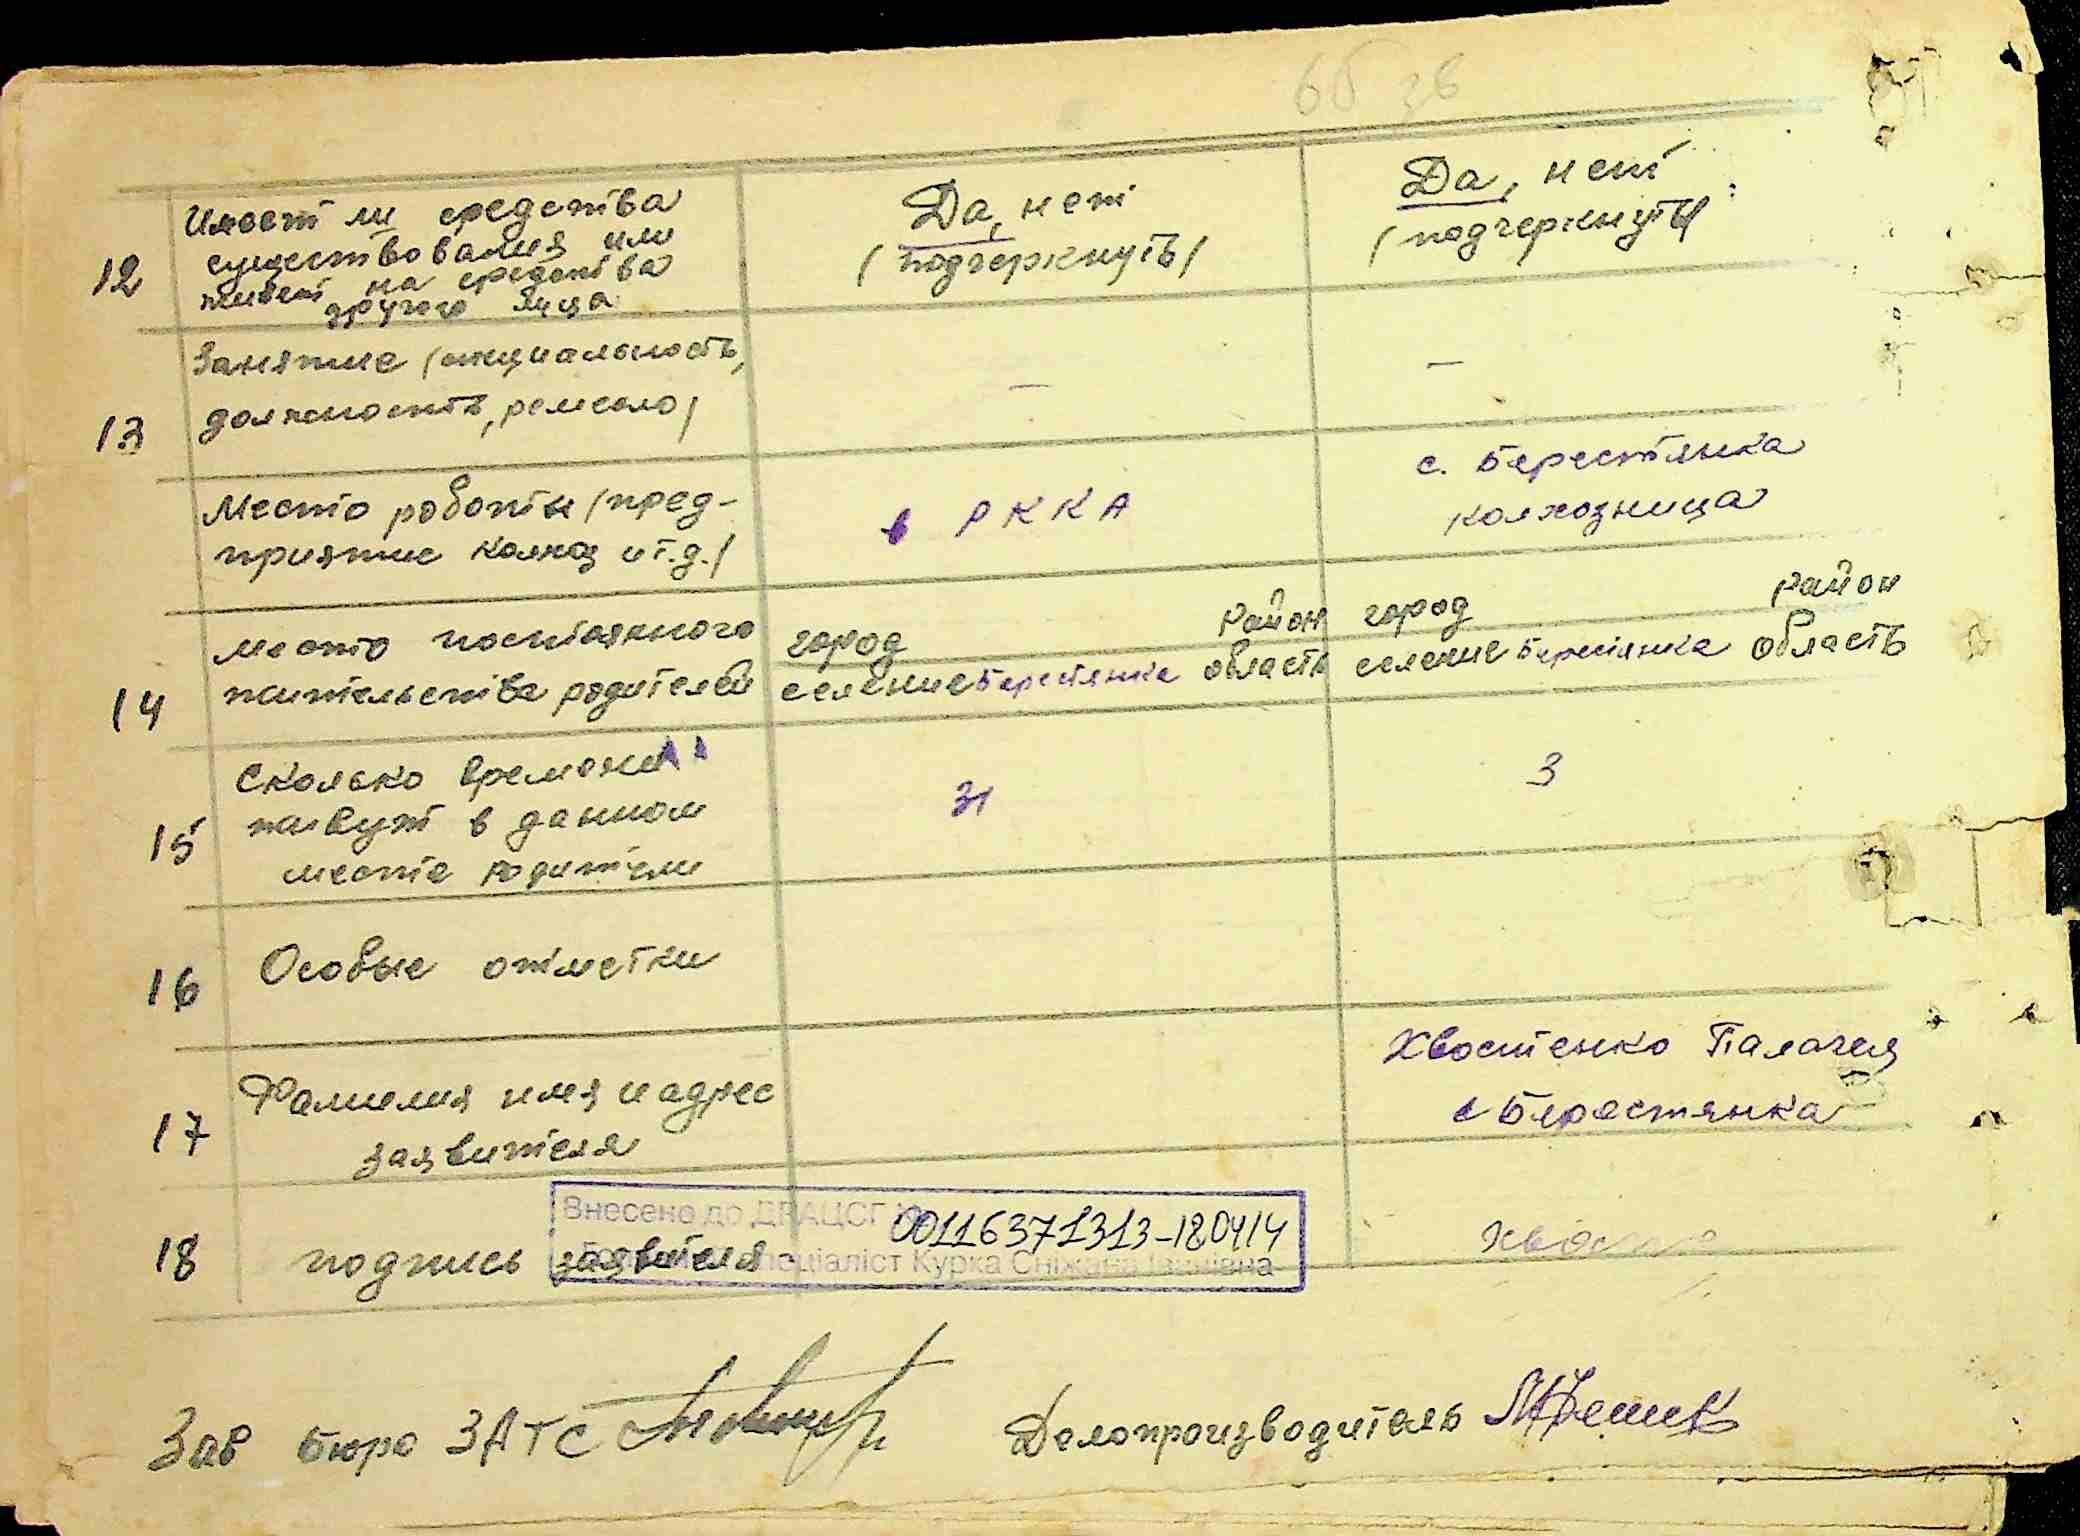 66 зв
12
Имеет ли средства
существования или
живет на средства
другого лица
Да, нет
(подчеркнуть)
Да, нет
(подчеркнуть)
13
Занятие (специальность,
должность, ремесло)
—
—
Место роботы (пред-
приятие колхоз и т.д.)
в РККА
с. Берестянка
колхозница
14
Место постоянного
жительства родителей
город район
селение Берестянка область
город район
селение Берестянка область
15
Сколько времени
живут в данном
месте родители
31
3
16
Особые отметки
17
Фамилия имя и адрес
заявителя
Хвостенко Палагея
с Берестянка
18
подпись заявителя
Внесено до ДРАЦСГ
00116371313-180414
спеціаліст Курка Сніжана Іванівна
Зав Бюро ЗАГС
Делопроизводитель